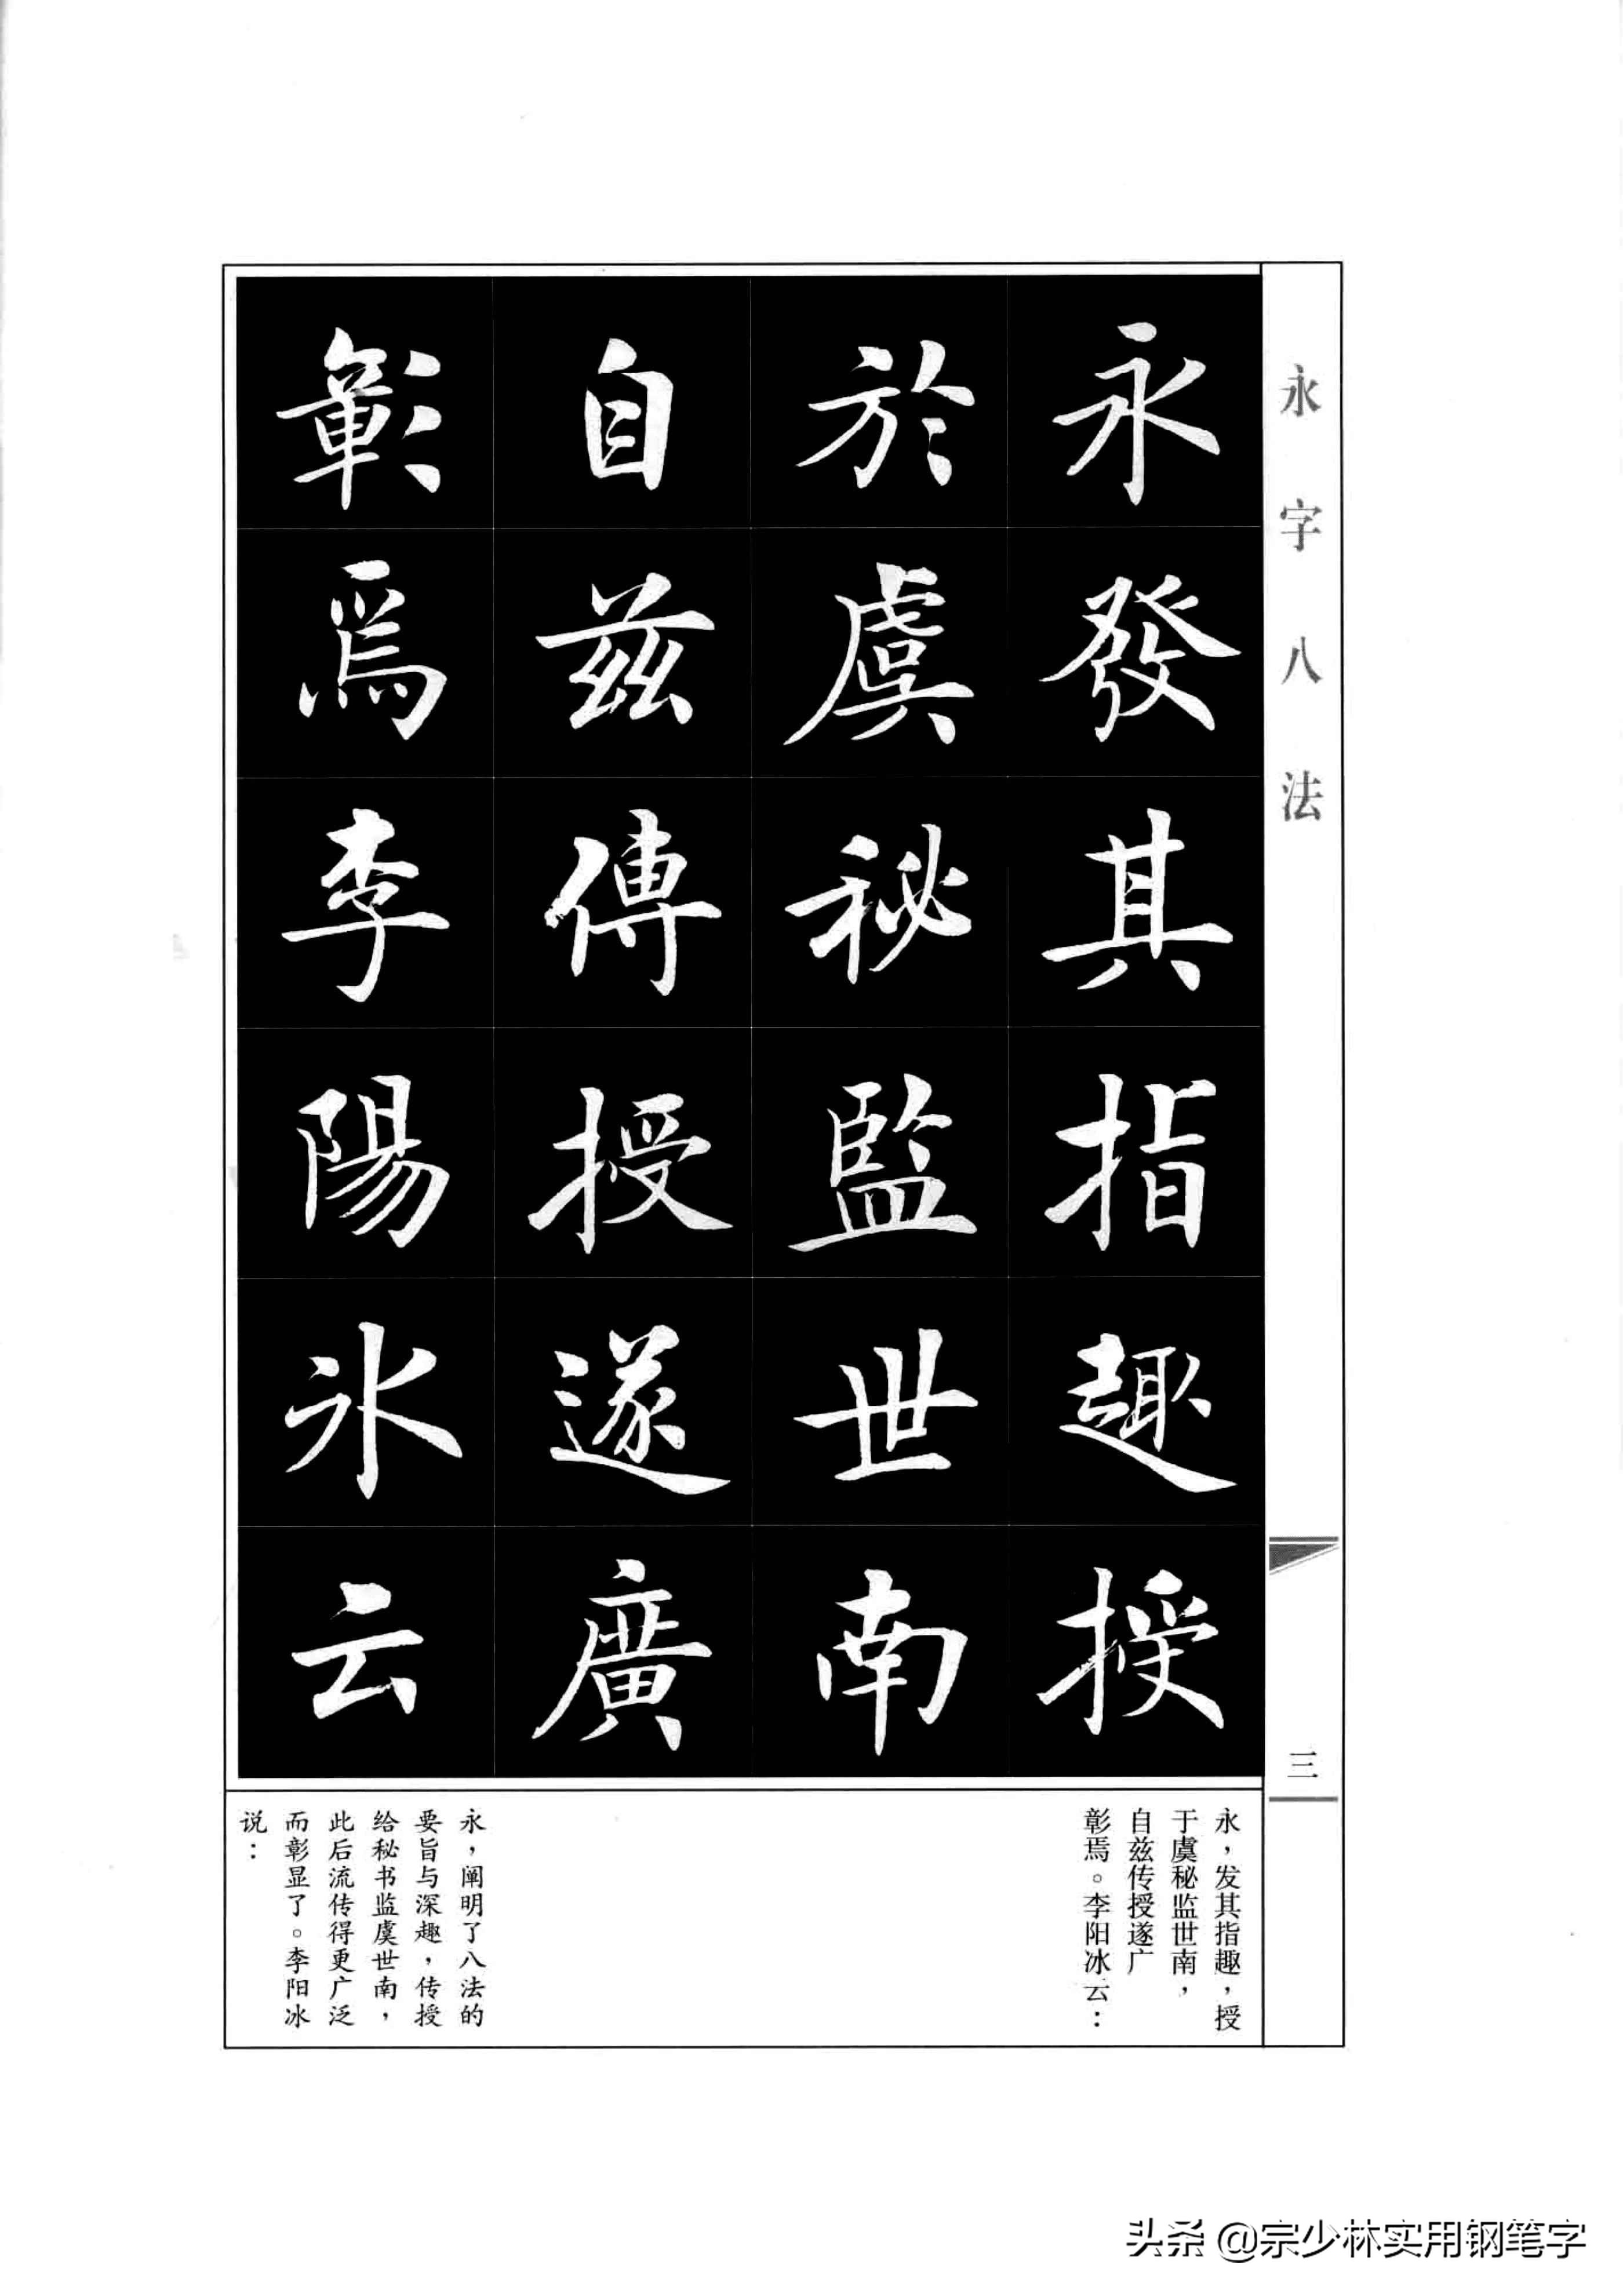 永字八法
三
永發其指趣授
於虞秘監世南
自兹傳授遂廣
彰焉李陽冰云
永，发其指趣，授
于虞秘监世南，
自兹传授遂广
彰焉。李阳冰云：
永，阐明了八法的
要旨与深趣，传授
给秘书监虞世南，
此后流传得更广泛
而彰显了。李阳冰
说：
头条 @宗少林实用钢笔字